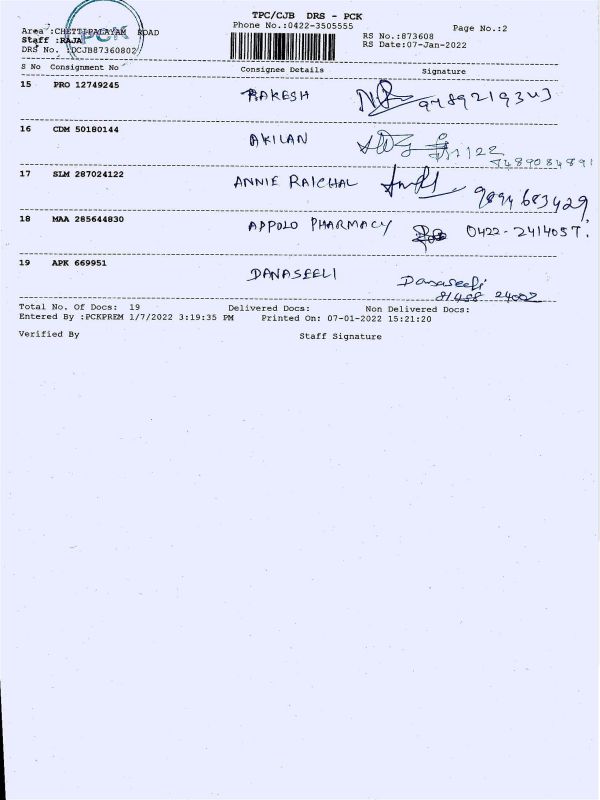 TPC/CJB DRS - PCK
Area :CHETTIPALAYAM ROAD Phone No.:0422-3505555 Page No.:2
Staff :RAJA RS No.:873608
DRS No. :DCJB87360802 RS Date:07-Jan-2022
PCK
S No Consignment No Consignee Details Signature
15 PRO 12749245 RAKESH
16 CDM 50180144 AKILAN
7489084891
17 SLM 287024122 ANNIE RAICHAL 9894683429
18 MAA 285644830 APPOLO PHARMACY 0422-2414057.
19 APK 669951 DANASEELI Danaseeli
81488 24002
Total No. Of Docs: 19 Delivered Docs: Non Delivered Docs:
Entered By :PCKPREM 1/7/2022 3:19:35 PM Printed On: 07-01-2022 15:21:20
Verified By Staff Signature